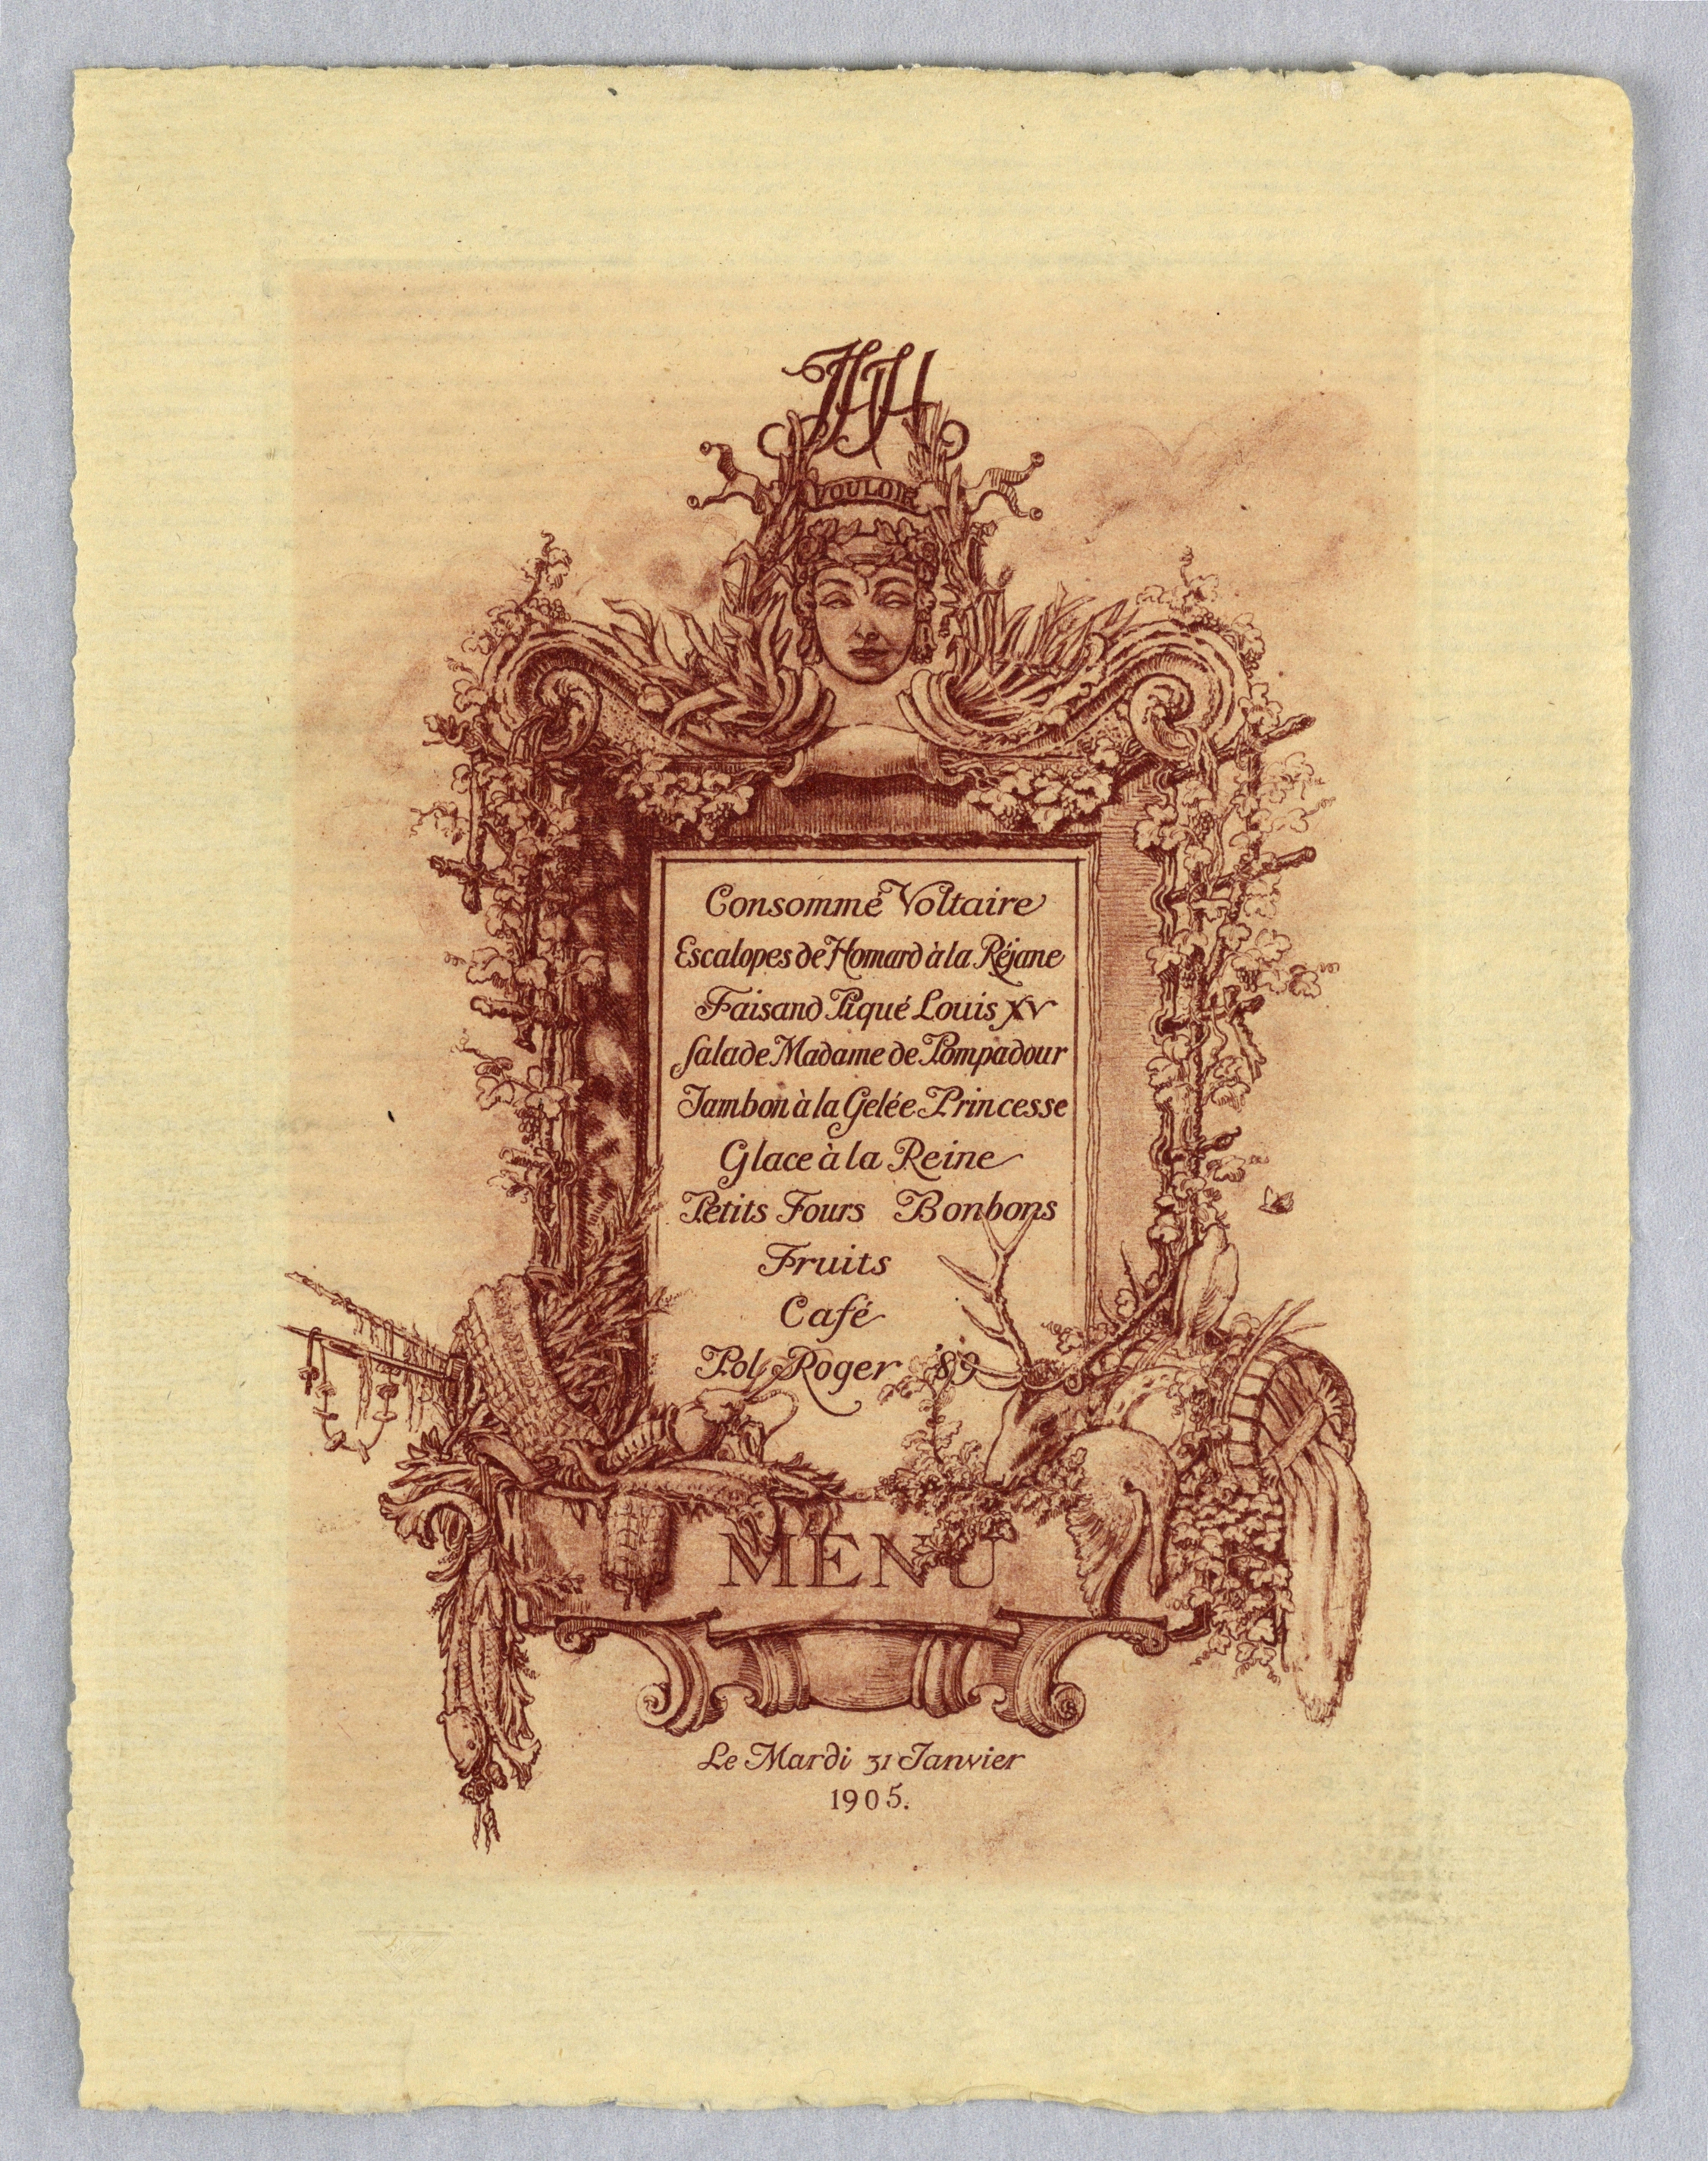 JHH
VOULOIR
Consommé Voltaire
Escalopes de Homard à la Réjane
Faisand Piqué Louis XV
Salade Madame de Pompadour
Jambon à la Gelée Princesse
Glace à la Reine
Petits Fours Bonbons
Fruits
Café
Pol Roger '89
MENU
Le Mardi 31 Janvier
1905.